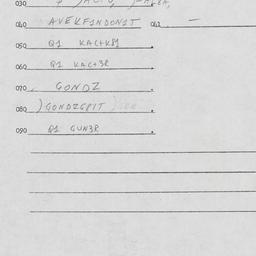 030
040 AVEKF1NDON1T 042 —
050 Q1 KAC+K81
060 Q1 KAC+3R
070 GONDZ
080 )GONDZGPIT)
090 Q1 GUN3R